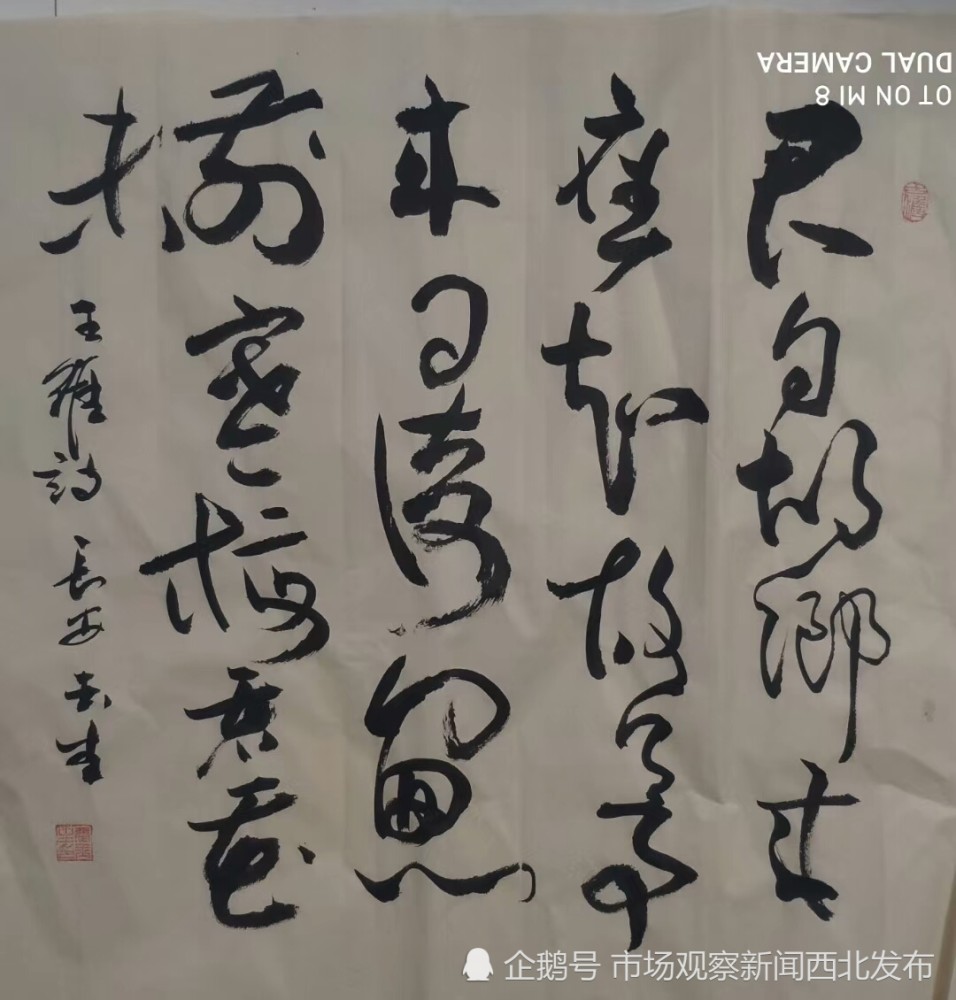 君自故鄉来
應知故乡事
来日綺窗
前寒梅著花
未
王維詩 長安
OT ON MI 8
DUAL CAMERA
企鹅号 市场观察新闻西北发布